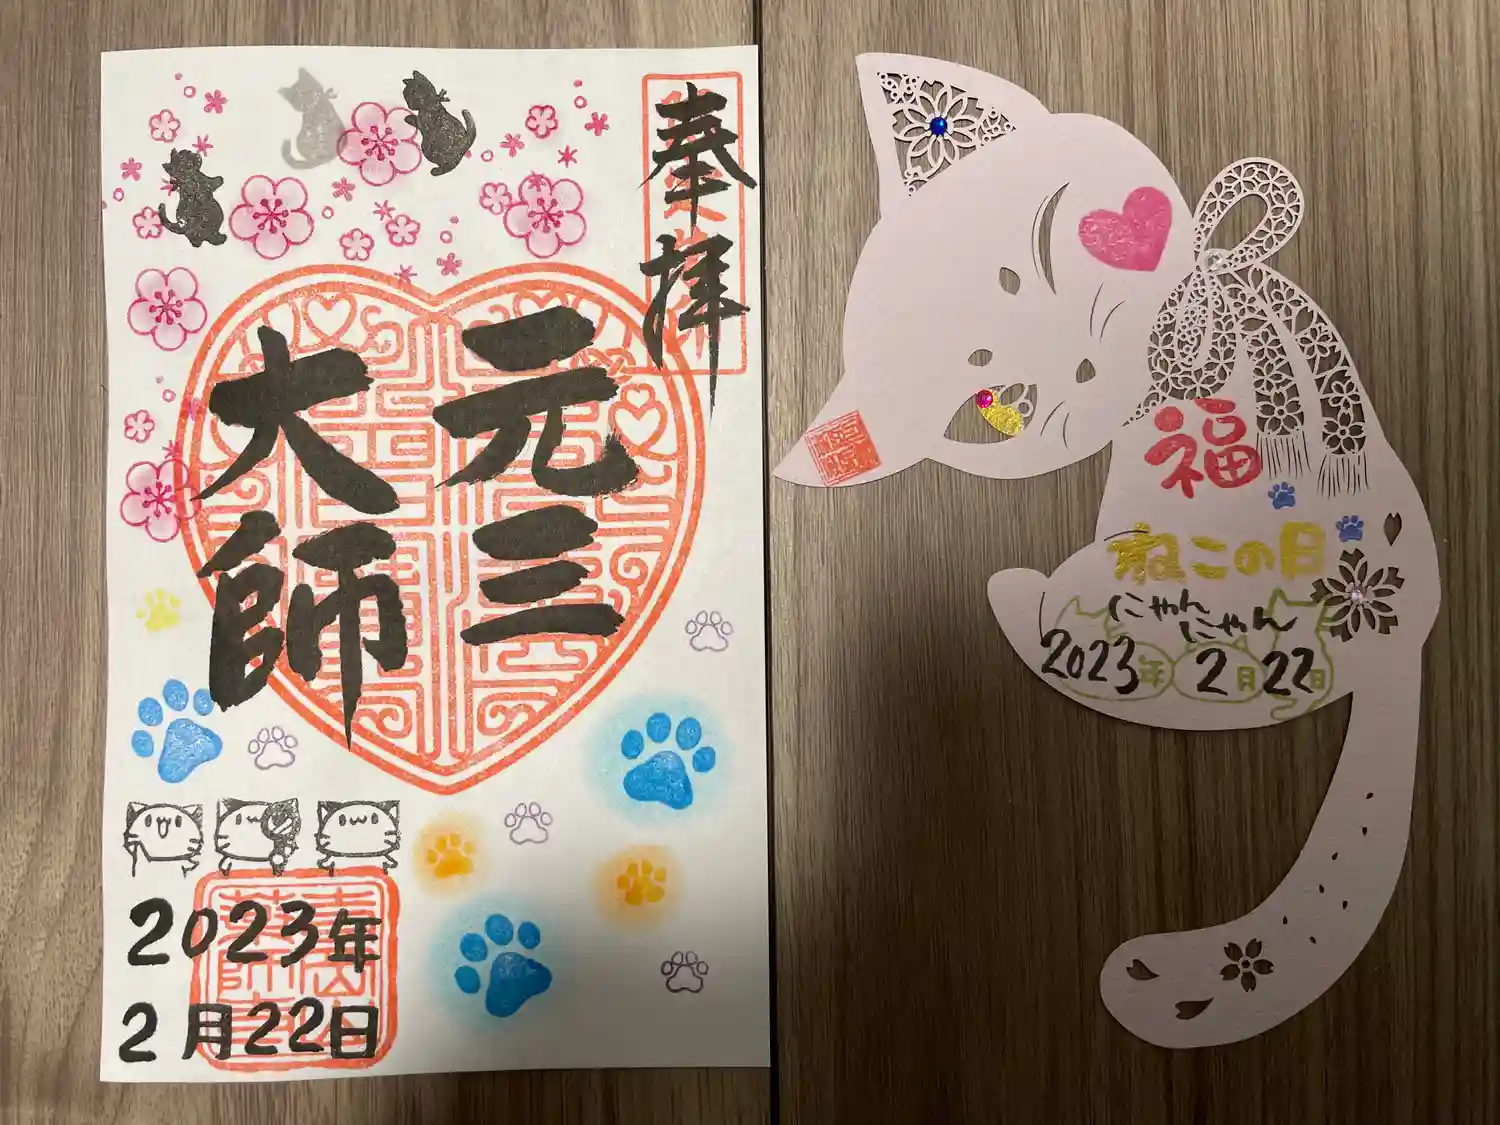 奉拝
元三
大師
2023年
2月22日
福
ねこの日
にゃん
にゃん
2023年 2月22日